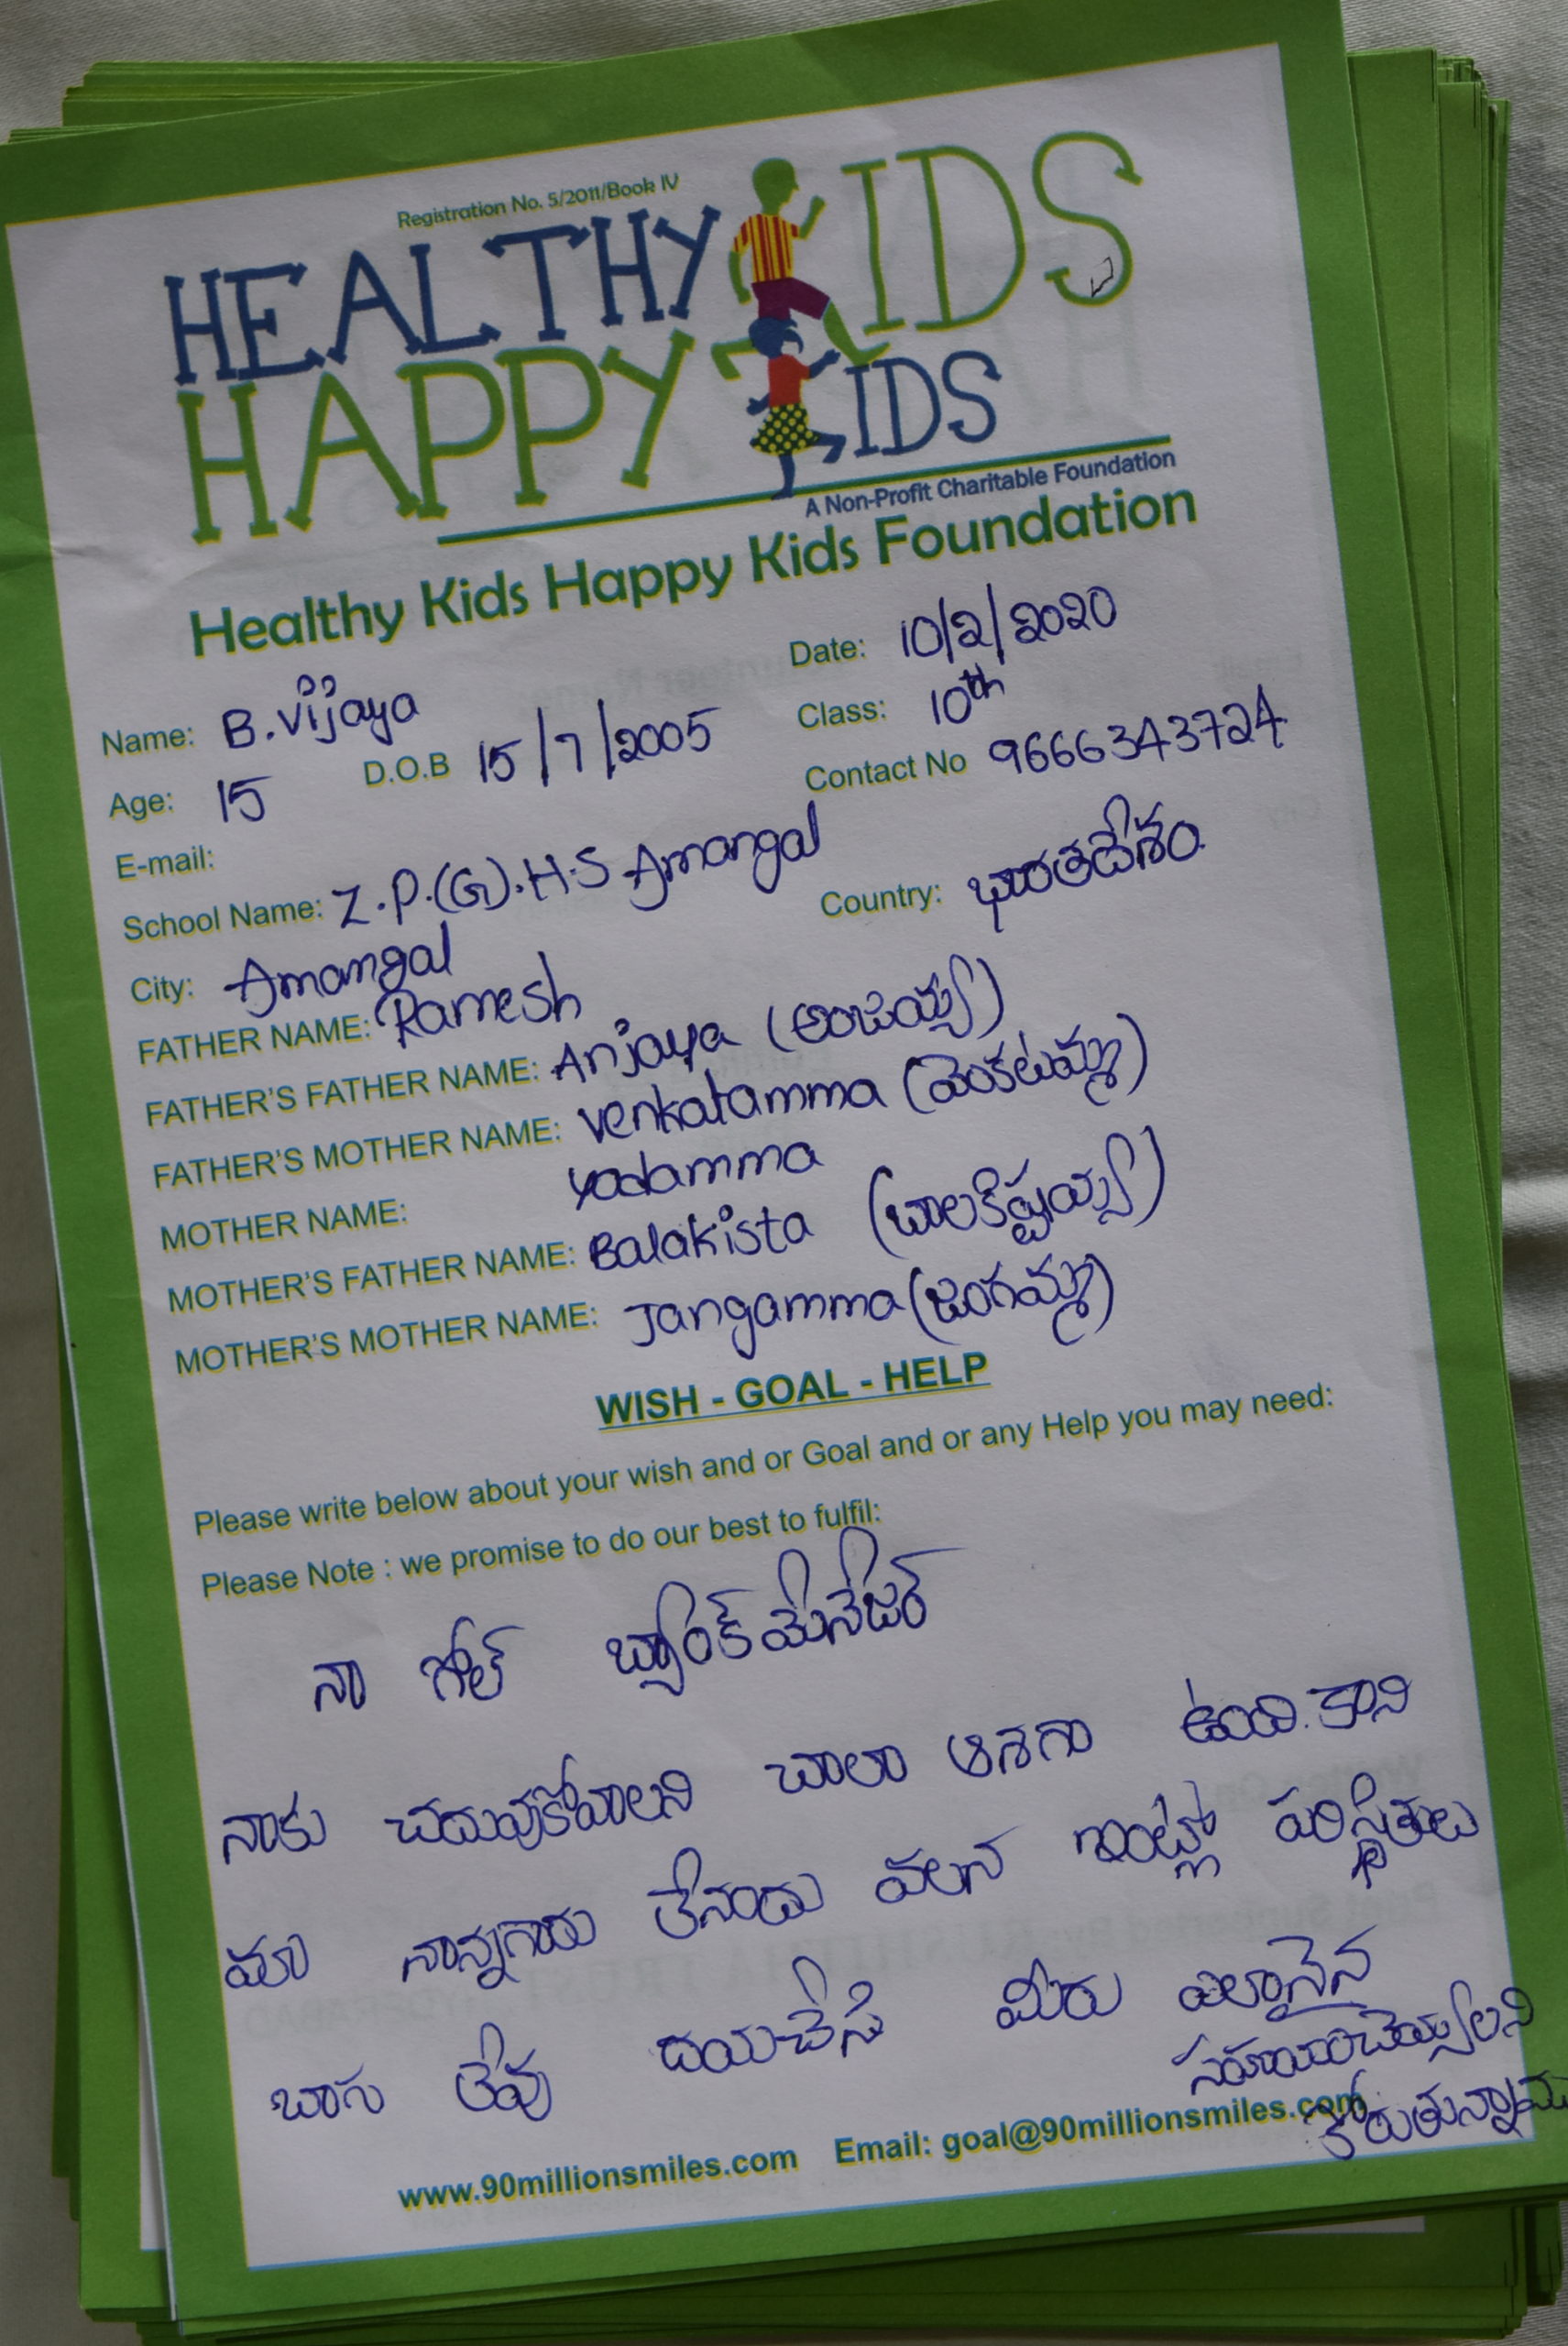 Registration No. 5/2011/Book IV
HEALTHY KIDS
HAPPY KIDS
A Non-Profit Charitable Foundation
Healthy Kids Happy Kids Foundation
Date: 10/2/2020
Name: B.Vijaya Class: 10th
Age: 15 D.O.B 15/7/2005 Contact No 9666343724
E-mail:
School Name: Z.P.(G).H.S Amangal
City: Amangal Country: భారతదేశం
FATHER NAME: Ramesh
FATHER'S FATHER NAME: Anjaya (అంజయ్య)
FATHER'S MOTHER NAME: venkatamma (వెంకటమ్మ)
MOTHER NAME: yadamma
MOTHER'S FATHER NAME: Balakista (బాలకిష్టయ్య)
MOTHER'S MOTHER NAME: Jangamma (జంగమ్మ)
WISH - GOAL - HELP
Please write below about your wish and or Goal and or any Help you may need:
Please Note : we promise to do our best to fulfil:
నా గోల్ బ్యాంక్ మేనేజర్
నాకు చదువుకోవాలని చాలా ఆశగా ఉంది. కాని
మా నాన్నగారు లేనందు వలన ఇంట్లో పరిస్థితులు
బాగ లేవు దయచేసి మీరు ఎలాగైన
సహయంచెయ్యాలని
కోరుతున్నాము
www.90millionsmiles.com Email: goal@90millionsmiles.com